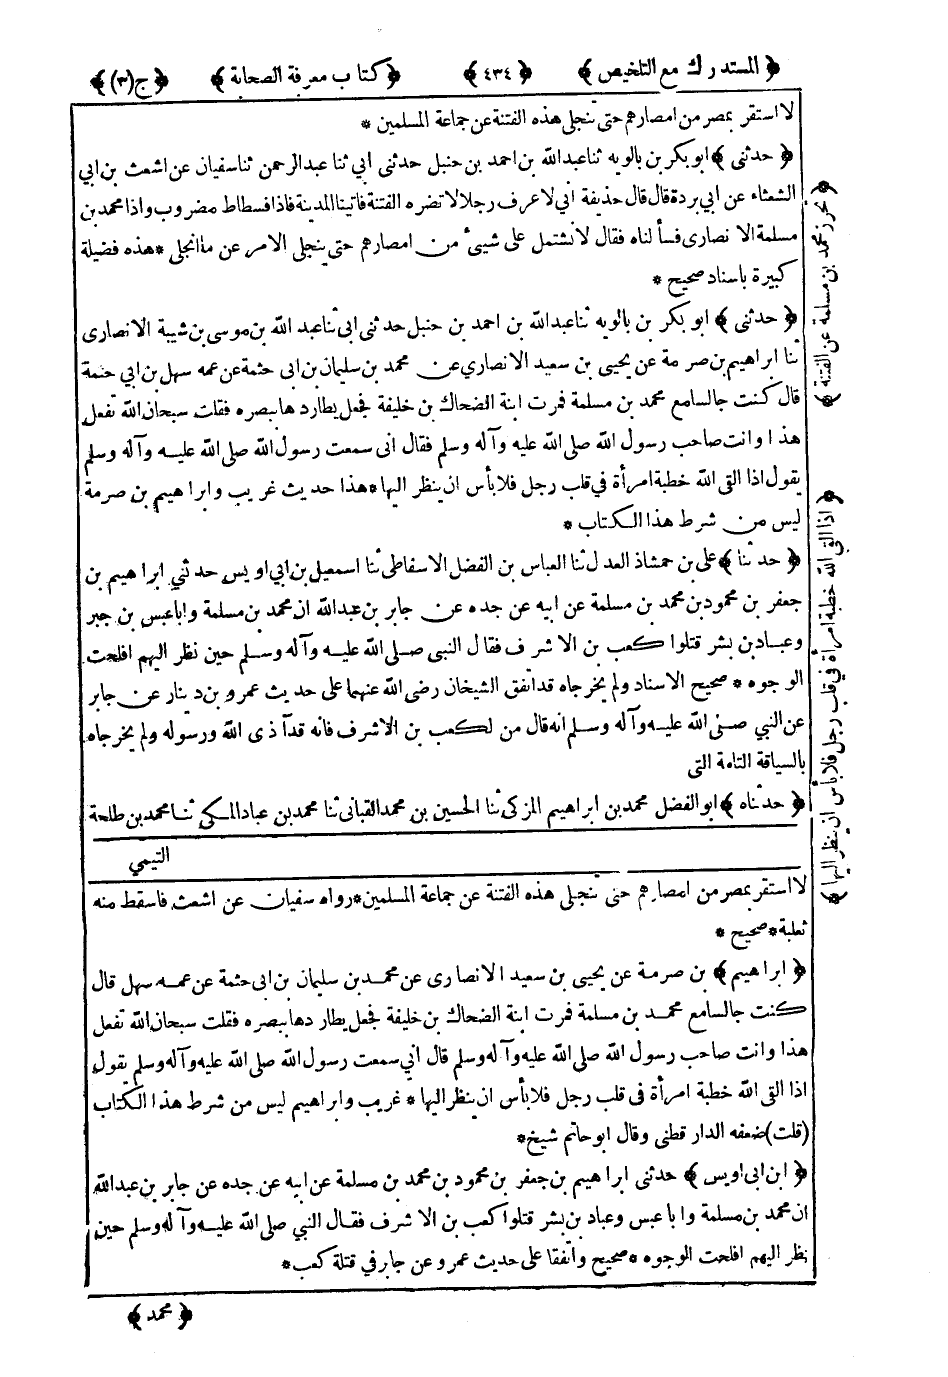 ﴿ المستدرك مع التلخيص ﴾ ﴿ ٤٣٤ ﴾ ﴿ كتاب معرفة الصحابة ﴾ ﴿ ج (٣) ﴾
لا استقر بمصر من امصارهم حتى تنجلى هذه الفتنة عن جماعة المسلمين *
﴿ حدثنى ﴾ ابو بكر بن بالويه ثنا عبد الله بن احمد بن حنبل حدثنى ابي ثنا عبد الرحمن ثنا سفيان عن اشعث بن ابي
الشعثاء عن ابي بردة قال قال حذيفة اني لاعرف رجلا لا تضره الفتنة فاتينا المدينة فاذا فسطاط مضروب واذا محمد بن
مسلمة الانصارى فسألناه فقال لا نشتمل على شيئ من امصارهم حتى ينجلى الامر عن ما انجلى * هذه فضيلة
كبيرة باسناد صحيح *
﴿ حدثنى ﴾ ابو بكر بن بالويه ثنا عبد الله بن احمد بن حنبل حدثنى ابى ثنا عبد الله بن موسى بن شيبة الانصارى
ثنا ابراهيم بن صرمة عن يحيى بن سعيد الانصاري عن محمد بن سليمان بن ابى حثمة عن عمه سهل بن ابي حثمة
قال كنت جالسا مع محمد بن مسلمة فمرت ابنة الضحاك بن خليفة فجعل يطاردها ببصره فقلت سبحان الله تفعل
هذا وانت صاحب رسول الله صلى الله عليه وآله وسلم فقال انى سمعت رسول الله صلى الله عليه وآله وسلم
يقول اذا القى الله خطبة امرأة في قلب رجل فلا بأس ان ينظر اليها * هذا حديث غريب وابراهيم بن صرمة
ليس من شرط هذا الكتاب *
﴿ حدثنا ﴾ على بن حمشاذ العدل ثنا العباس بن الفضل الاسفاطى ثنا اسمعيل بن ابي اويس حدثني ابراهيم بن
جعفر بن محمود بن محمد بن مسلمة عن ابيه عن جده عن جابر بن عبد الله ان محمد بن مسلمة وابا عبس بن جبر
وعباد بن بشر قتلوا كعب بن الاشرف فقال النبى صلى الله عليه وآله وسلم حين نظر اليهم افلحت
الوجوه * صحيح الاسناد ولم يخرجاه قد اتفق الشيخان رضى الله عنهما على حديث عمرو بن دينار عن جابر
عن النبي صلى الله عليه وآله وسلم انه قال من لكعب بن الاشرف فانه قد آذى الله ورسوله ولم يخرجاه
بالسياقة التامة التى
﴿ حدثناه ﴾ ابو الفضل محمد بن ابراهيم المزكى ثنا الحسين بن محمد القبانى ثنا محمد بن عباد المكى ثنا محمد بن طلحة
التيمي
﴿ تحرز محمد بن مسلمة عن الفتنة ﴾
﴿ اذا القى الله خطبة امرأة في قلب رجل فلا بأس ان ينظر اليها ﴾
لا استقر بمصر من امصارهم حتى تنجلى هذه الفتنة عن جماعة المسلمين * رواه سفيان عن اشعث فاسقط منه
ثعلبة * صحيح *
﴿ ابراهيم ﴾ بن صرمة عن يحيى بن سعيد الانصارى عن محمد بن سليمان بن ابى حثمة عن عمه سهل قال
كنت جالسا مع محمد بن مسلمة فمرت ابنة الضحاك بن خليفة فجعل يطاردها ببصره فقلت سبحان الله تفعل
هذا وانت صاحب رسول الله صلى الله عليه وآله وسلم قال أني سمعت رسول الله صلى الله عليه وآله وسلم يقول
اذا القى الله خطبة امرأة فى قلب رجل فلا بأس ان ينظر اليها * غريب وابراهيم ليس من شرط هذا الكتاب
(قلت) ضعفه الدارقطنى وقال ابو حاتم شيخ *
﴿ ابن ابى اويس ﴾ حدثنى ابراهيم بن جعفر بن محمود بن محمد بن مسلمة عن ابيه عن جده عن جابر بن عبد الله
ان محمد بن مسلمة وابا عبس وعباد بن بشر قتلوا كعب بن الاشرف فقال النبي صلى الله عليه وآله وسلم حين
نظر اليهم افلحت الوجوه * صحيح واتفقا على حديث عمرو عن جابر في قتلة كعب *
﴿ محمد ﴾